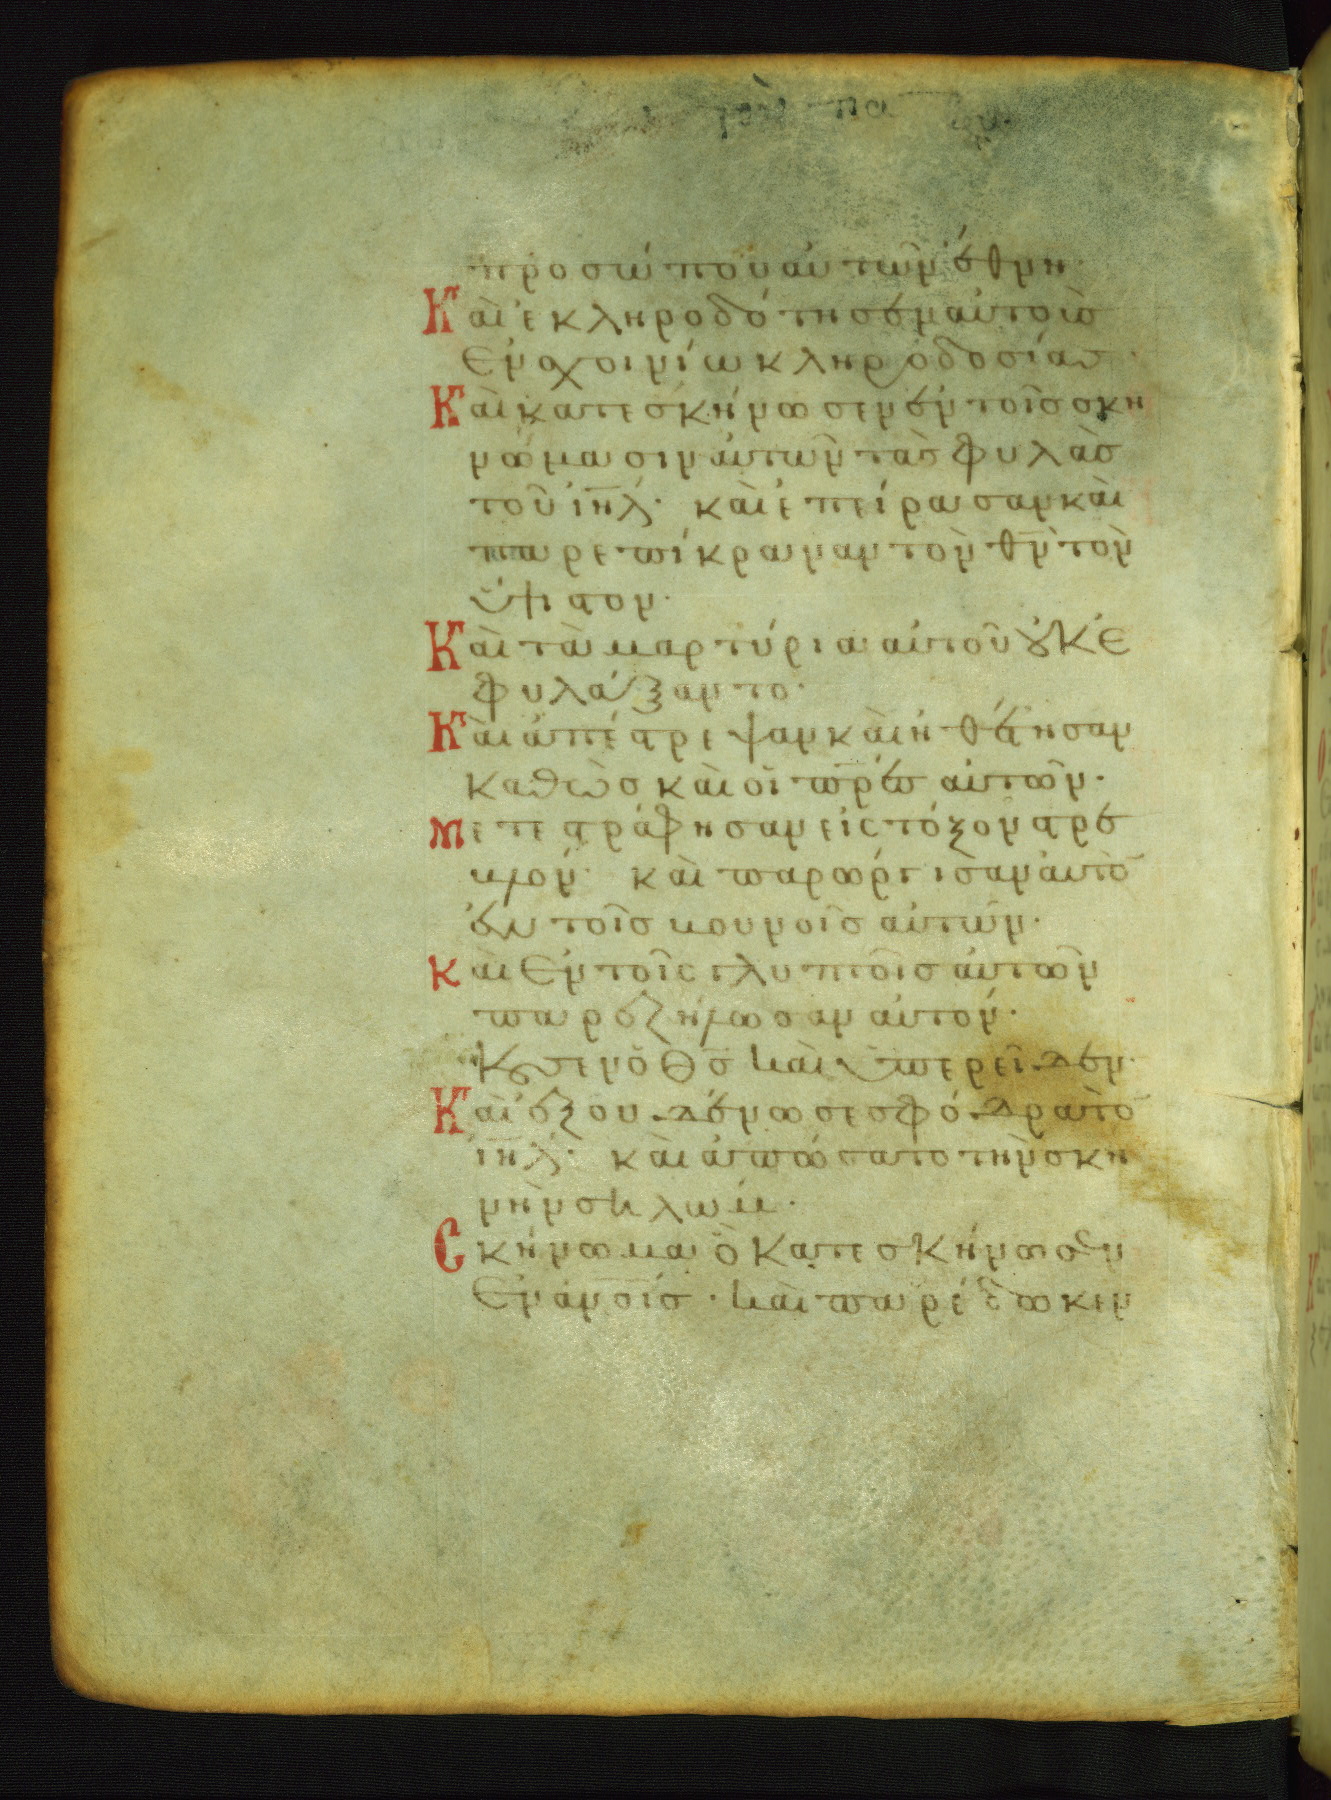 προσώπου αὐτῶν ἔθνη·
Καὶ ἐκληροδότησεν αὐτοὺς
ἐν σχοινίω κληροδοσίας·
Καὶ κατεσκήνωσεν ἐν τοῖς σκη
νώμασιν αὐτῶν τὰς φυλὰς
τοῦ ἰηλ· καὶ ἐπείρασαν καὶ
παρεπίκραναν τὸν θν τὸν
ὕψιστον·
Καὶ τὰ μαρτύρια αὐτοῦ οὐκ ἐ
φυλάξαντο·
Καὶ ἀπέστρεψαν καὶ ἠθέτησαν
καθὼς καὶ οἱ πρες αὐτῶν·
Μετεστράφησαν εἰς τόξον στρε
βλόν· καὶ παρώργισαν αὐτὸ
ἐν τοῖς βουνοῖς αὐτῶν·
Καὶ ἐν τοῖς γλυπτοῖς αὐτῶν
παρεζήλωσαν αὐτόν·
Ἤκουσεν ὁ θς καὶ ὑπερεῖδεν·
Καὶ ἐξουδένωσε σφόδρα τὸ
ἰηλ· καὶ ἀπώσατο τὴν σκη
νὴν σηλώμ·
Σκήνωμα ὃ κατεσκήνωσεν
ἐν ανοις· καὶ παρέδωκεν